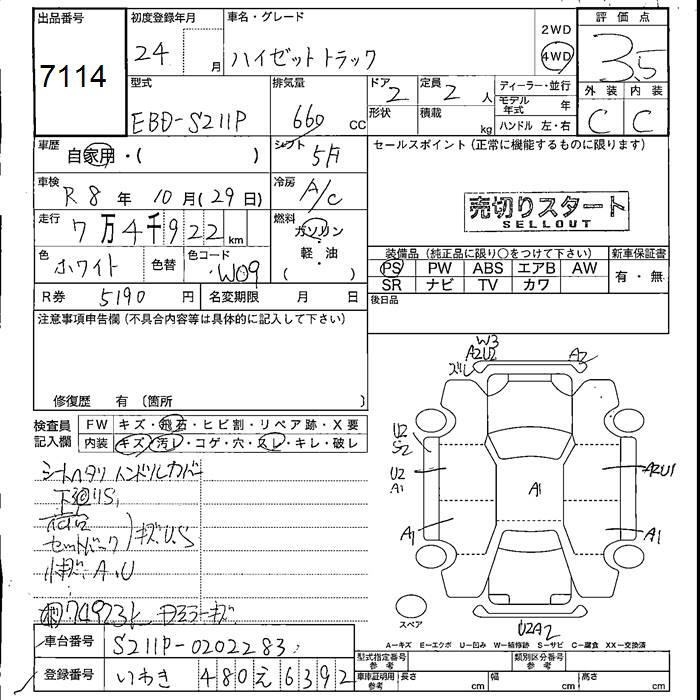 出品番号 初度登録年月 車名・グレード 評価点
7114 24 月 ハイゼットトラック 2WD 4WD 3.5
型式 排気量 ドア 2 定員 2 人 ディーラー・並行 外装 内装
EBD-S211P 660 cc 形状 積載 kg モデル年式 年 C C
ハンドル 左・右
車歴 自家用・( ) シフト 5F セールスポイント (正常に機能するものに限ります)
車検 R 8 年 10 月 (29 日) 冷房 A/C
売切りスタート
SELLOUT
走行 7万4千922 km 燃料 ガソリン 軽・油 ( )
色 ホワイト 色替 色コード W09
装備品 (純正品に限り○をつけて下さい) 新車保証書
PS PW ABS エアB AW 有・無
SR ナビ TV カワ
R券 5190 円 名変期限 月 日 後日品
注意事項申告欄 (不具合内容等は具体的に記入して下さい)
修復歴 有 (箇所 )
検査員記入欄 FW キズ・飛石・ヒビ割・リペア跡・X要
内装 キズ・汚レ・コゲ・穴・スレ・キレ・破レ
シートヘタリ ハンドルカバー
下廻りS,
セットバック キズU.S
小キズ A.U
74923k Dミラーキズ
W3
A2U2 A2
ズレ
U2
S2
U2 A2U1
A1
A1
A1 A1
スペア U2A2
A-キズ E-エクボ U-凹み W-補修跡 S-サビ C-腐食 XX-交換済
車台番号 S211P-0202283
型式指定番号 参考 類別区分番号 参考
登録番号 いわき 480 え 6392
車庫証明用 参考 長さ cm 幅 cm 高さ cm